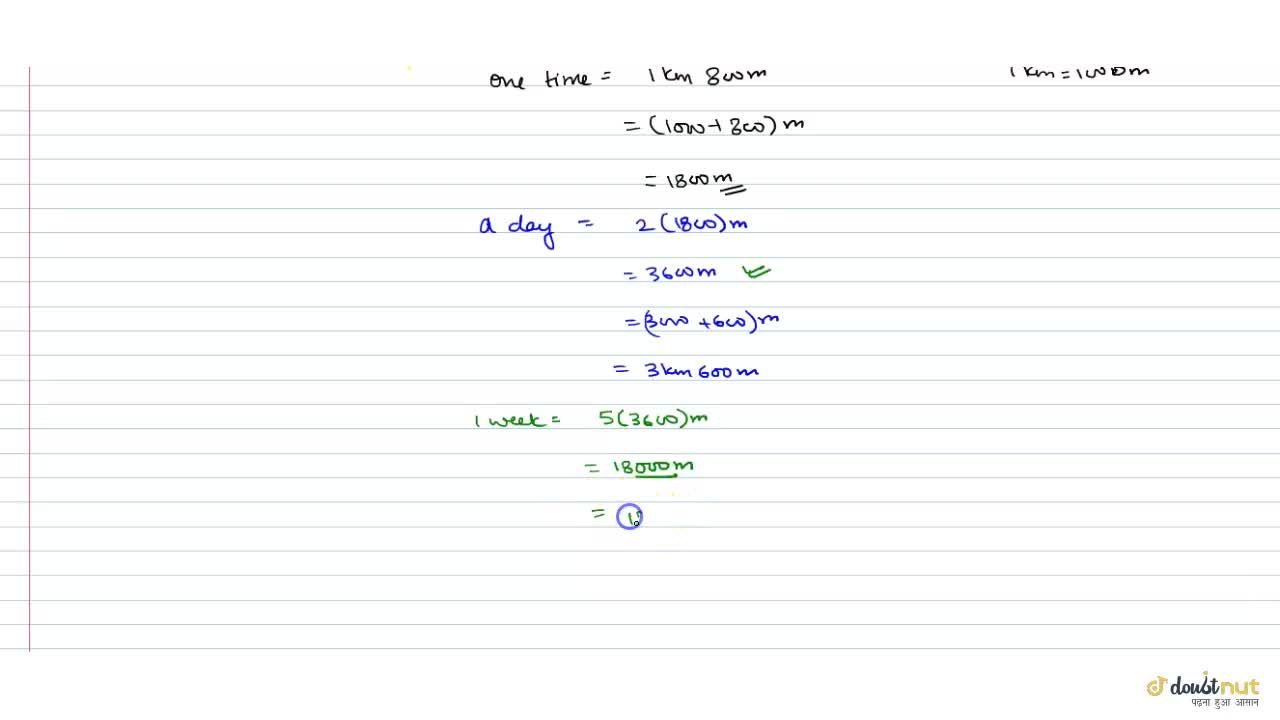 one time = 1 km 800 m
1 km = 1000 m
= (1000 + 800) m
= 1800 m
a day = 2 (1800) m
= 3600 m
= (3000 + 600) m
= 3 km 600 m
1 week = 5 (3600) m
= 18000 m
= 18
doubtnut
पढ़ना हुआ आसान